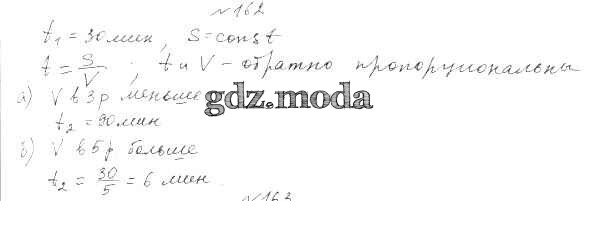 № 162
t₁ = 30 мин, S = const
t = S/V ; t и V – обратно пропорциональны
а) V в 3 р меньше
gdz.moda
t₂ = 90 мин
б) V в 5 р больше
t₂ = 30/5 = 6 мин.
№ 163